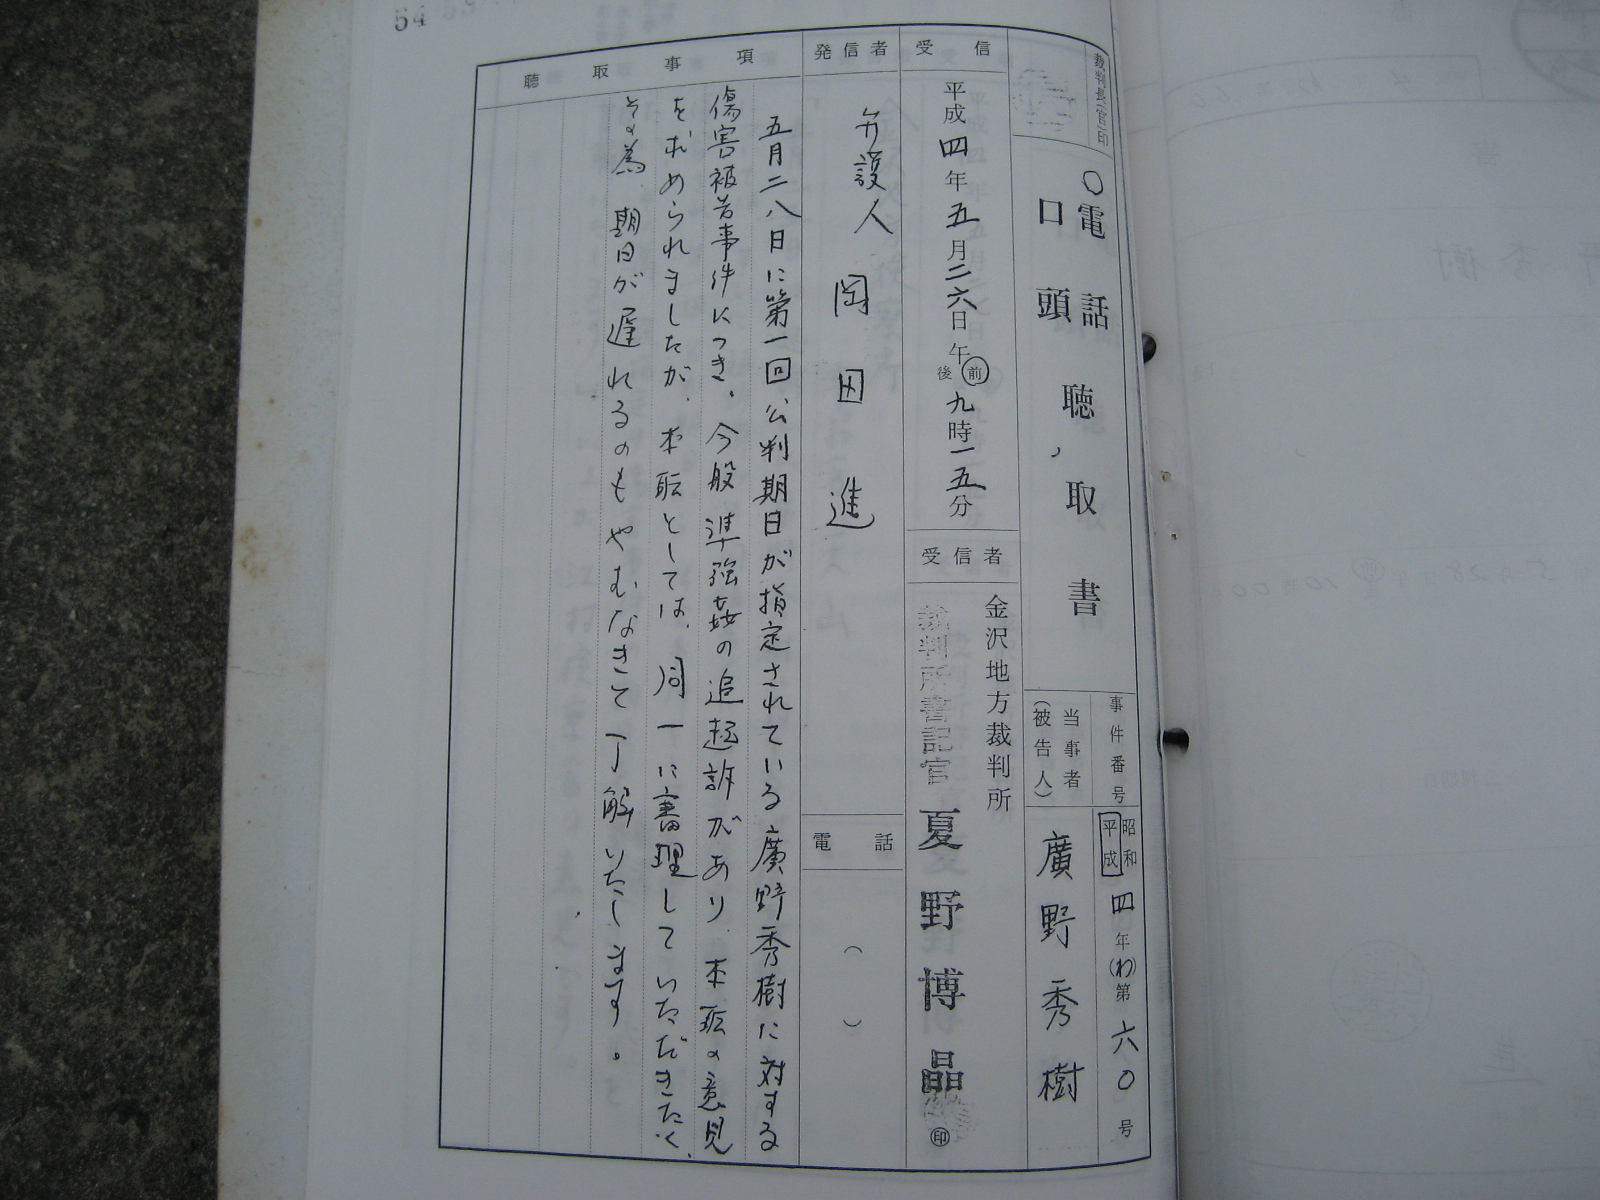 54
裁判長(官)印
○電話
口頭
聴取書
事件番号
昭和
平成
四年(わ)第六〇号
当事者
(被告人)
廣野秀樹
受信
平成四年五月二六日午前後九時一五分
受信者
金沢地方裁判所
裁判所書記官 夏野博晶 ㊞
発信者
弁護人 岡田進
電話
( )
聴取事項
五月二八日に第一回公判期日が指定されている廣野秀樹に対する
傷害被告事件につき、今般準強姦の追起訴があり、本職の意見
を求められましたが、本職としては、同一に審理していただきたく、
その為期日が遅れるのもやむなきて了解いたします。